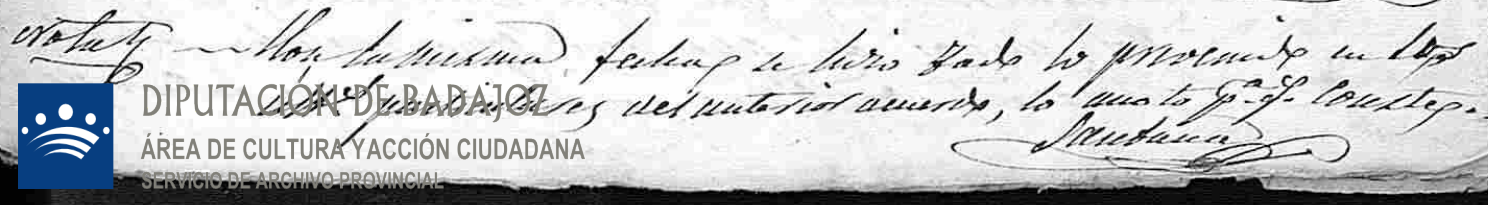 Nota Con la misma fecha se hizo todo lo prevenido en los
particulares del anterior acuerdo, lo anoto pª. qe. conste.
Santana
DIPUTACIÓN DE BADAJOZ
ÁREA DE CULTURA Y ACCIÓN CIUDADANA
SERVICIO DE ARCHIVO PROVINCIAL